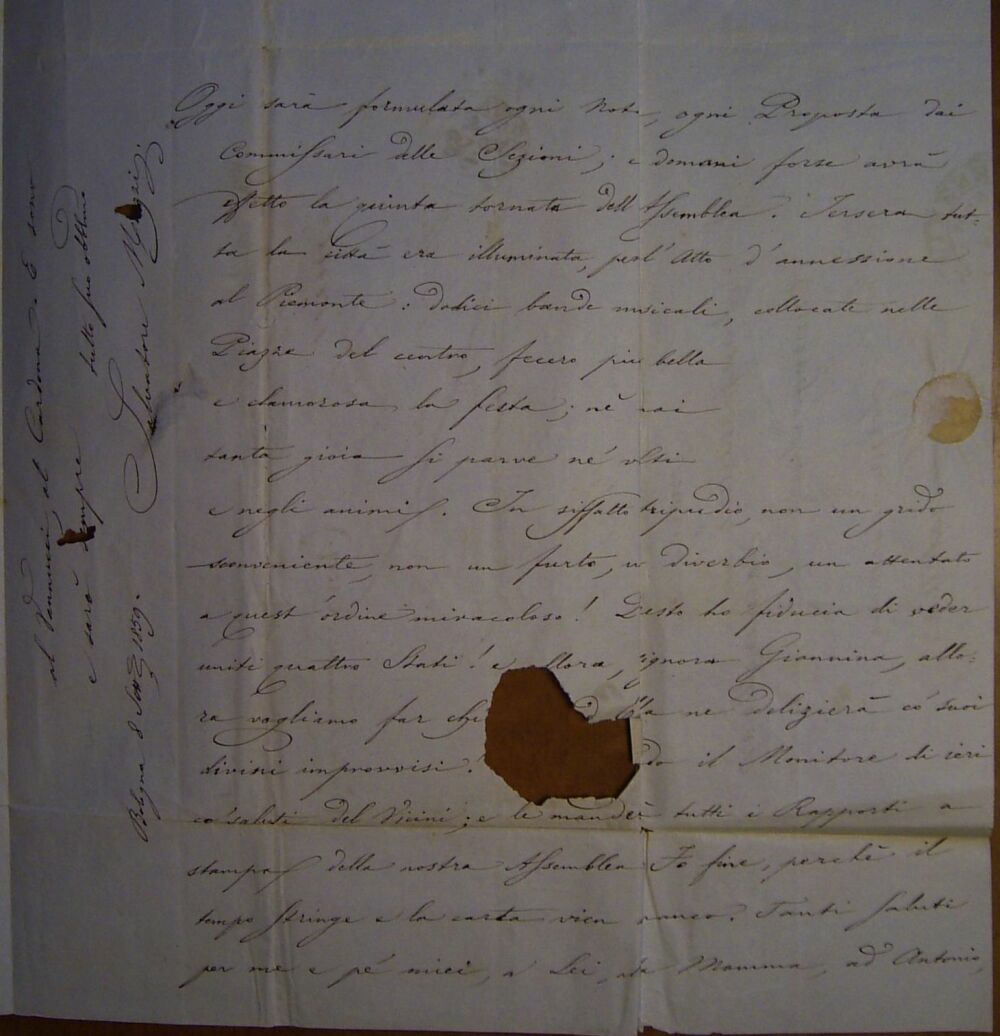 Oggi sarà formulata ogni Nota, ogni Proposta dai
Commissari delle Sezioni; e domani forse avrà
effetto la quinta tornata dell'Assemblea. Iersera tut-
ta la città era illuminata, pell'Atto d'annessione
al Piemonte: dodici bande musicali, collocate nelle
Piazze del centro, fecero più bella
e clamorosa la festa; nè mai
tanta gioia si parve ne' volti
e negli animi. In siffatto tripudio, non un grido
sconveniente, non un furto, un diverbio, un attentato
a quest'ordine miracoloso! Presto ho fiducia di veder
uniti quattro Stati! e allora, Signora Giannina, allo-
ra vogliamo far che Ella ne delizierà co' suoi
divini improvvisi! il Monitore di ieri
co' saluti del Vicini; e le manderò tutti i Rapporti a
stampa della nostra Assemblea. Fo fine, perchè il
tempo stringe e la carta vien manco. Tanti saluti
per me e pe' miei, a Lei, alla Mamma, ad Antonio,
al Vannucci, al Cardona. E sono
e sarò sempre tutto suo obbl.mo
Salvatore Muzzi
Bologna 8 1859.